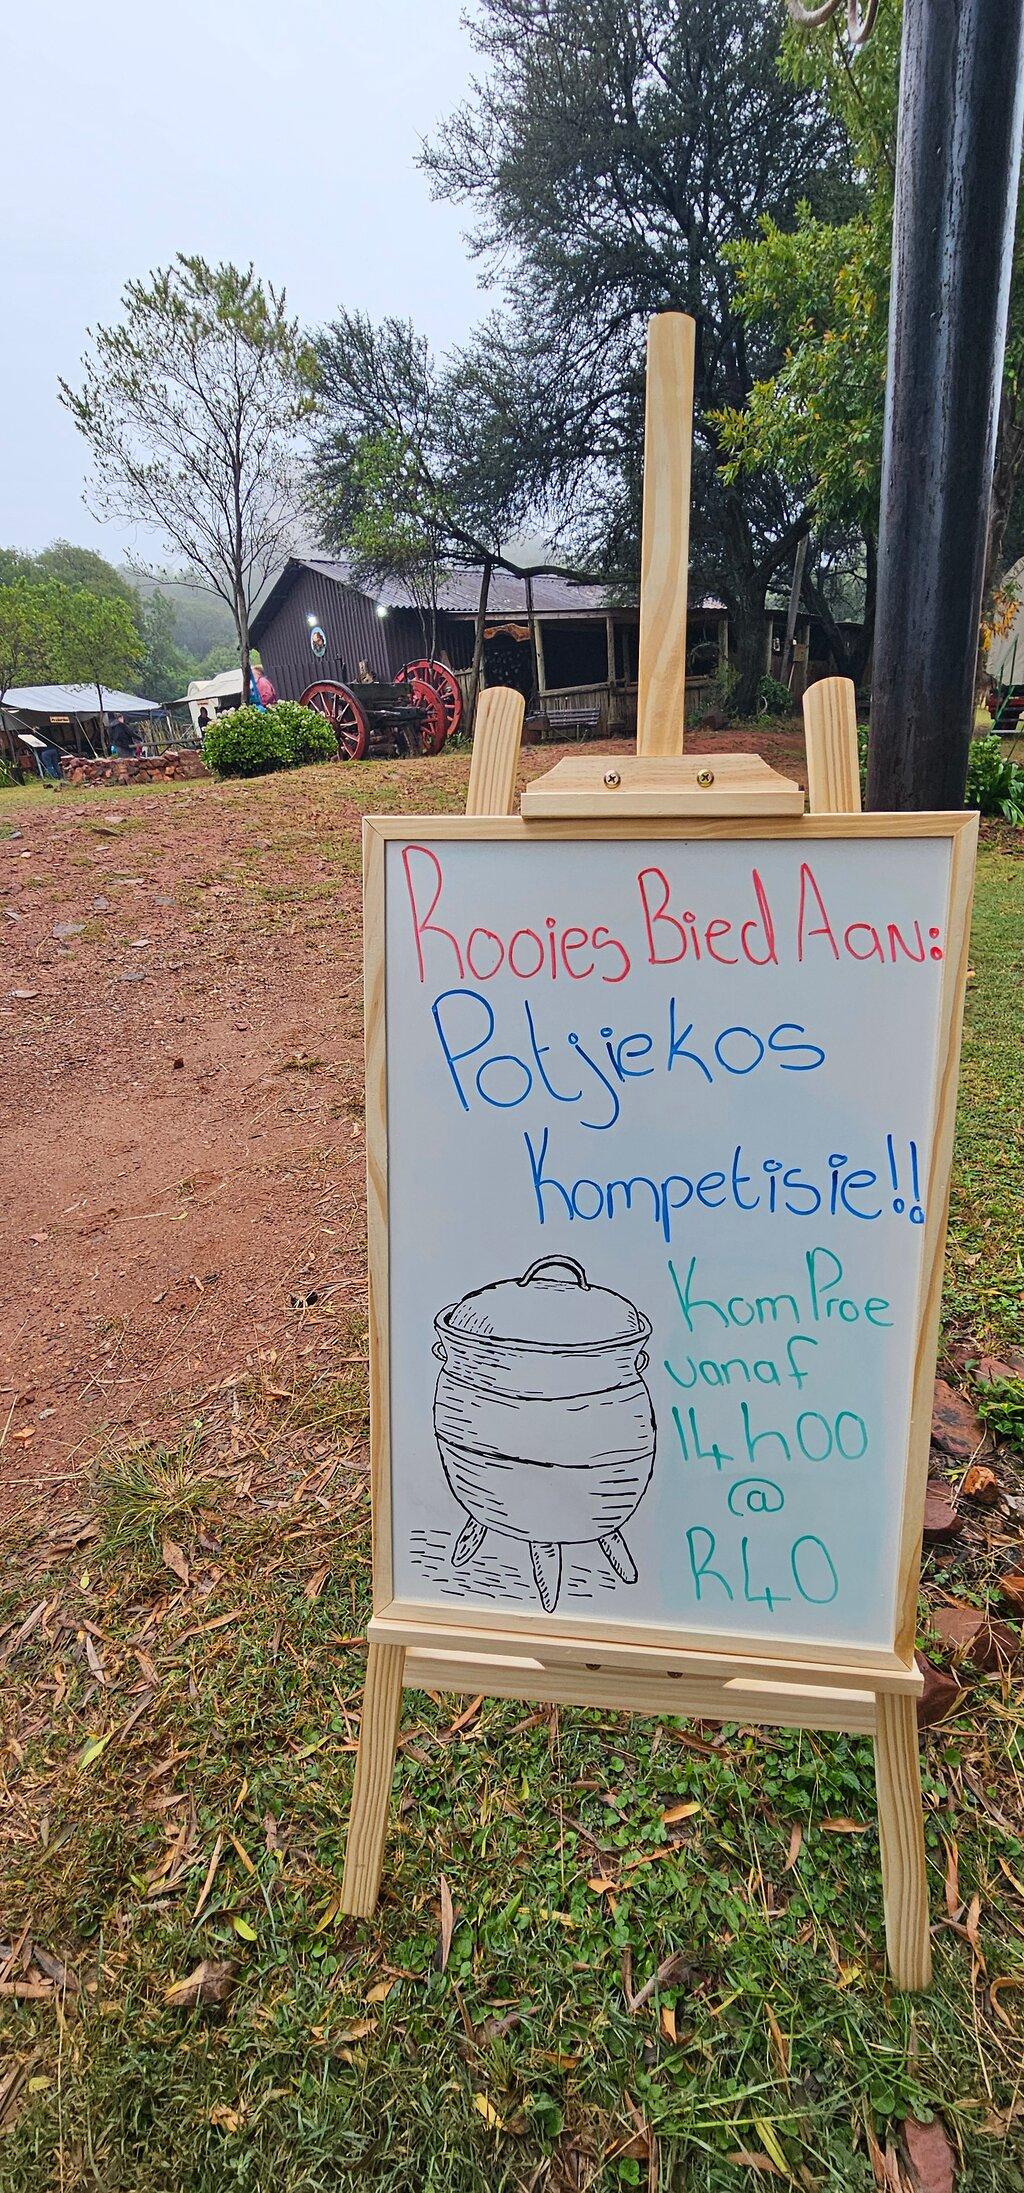 Rooies Bied Aan:
Potjiekos
Kompetisie!!
Kom Proe
vanaf
14h00
@
R40